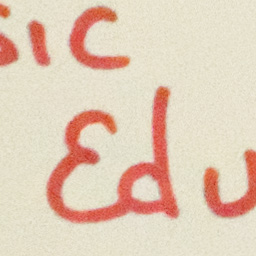 sic
Edu